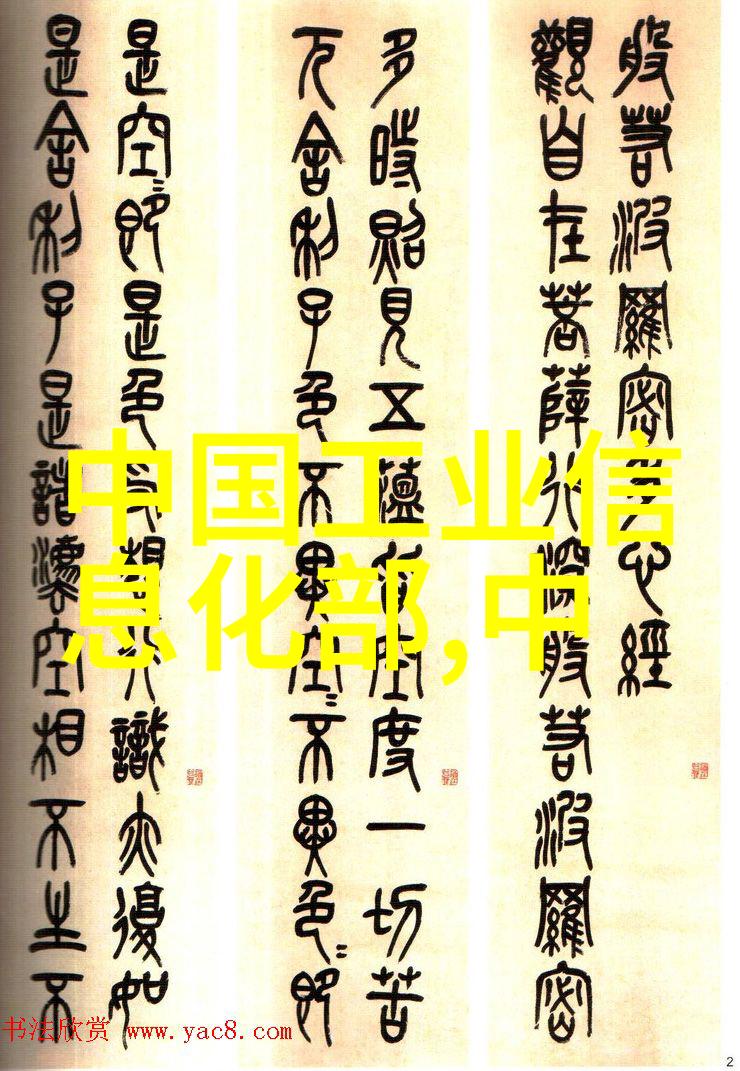 般若波羅密多心經
觀自在菩薩行深般若波羅密
多時照見五蘊皆空度一切苦
厄舍利子色不異空〻不異色〻即
是空〻即是色受想行識亦復如
是舍利子是諸灋空相不生不
中国工业信
息化部,中
书法欣赏 www.yac8.com
2